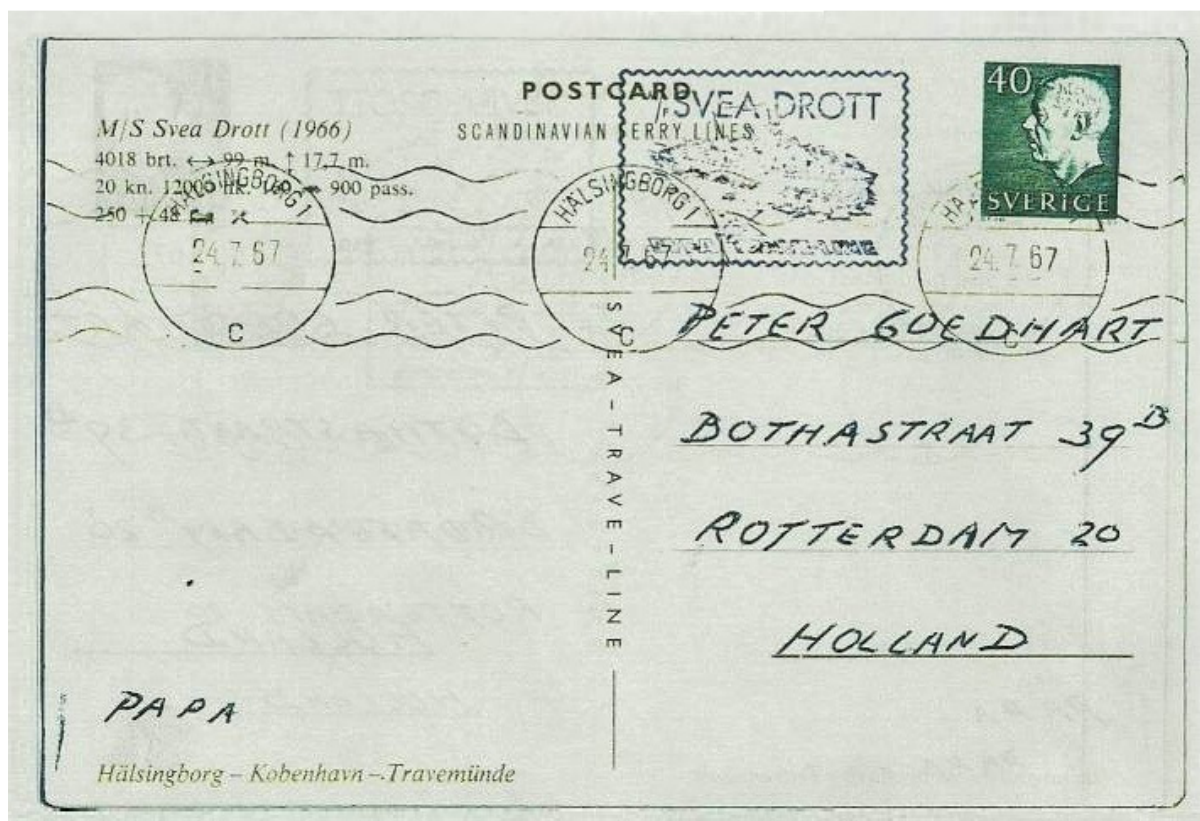 POSTCARD
SCANDINAVIAN FERRY LINES
M/S Svea Drott (1966)
4018 brt. ↔ 99 m. ↑ 17.7 m.
20 kn. 12000 hk. 160 900 pass.
250 + 48
M/S SVEA DROTT
40
SVERIGE
HÄLSINGBORG 1
24.7.67
C
HÄLSINGBORG 1
24.7.67
C
24.7.67
C
SVEA-TRAVE-LINE
PETER GOEDHART
BOTHASTRAAT 39B
ROTTERDAM 20
HOLLAND
PAPA
Hälsingborg – Kobenhavn – Travemünde